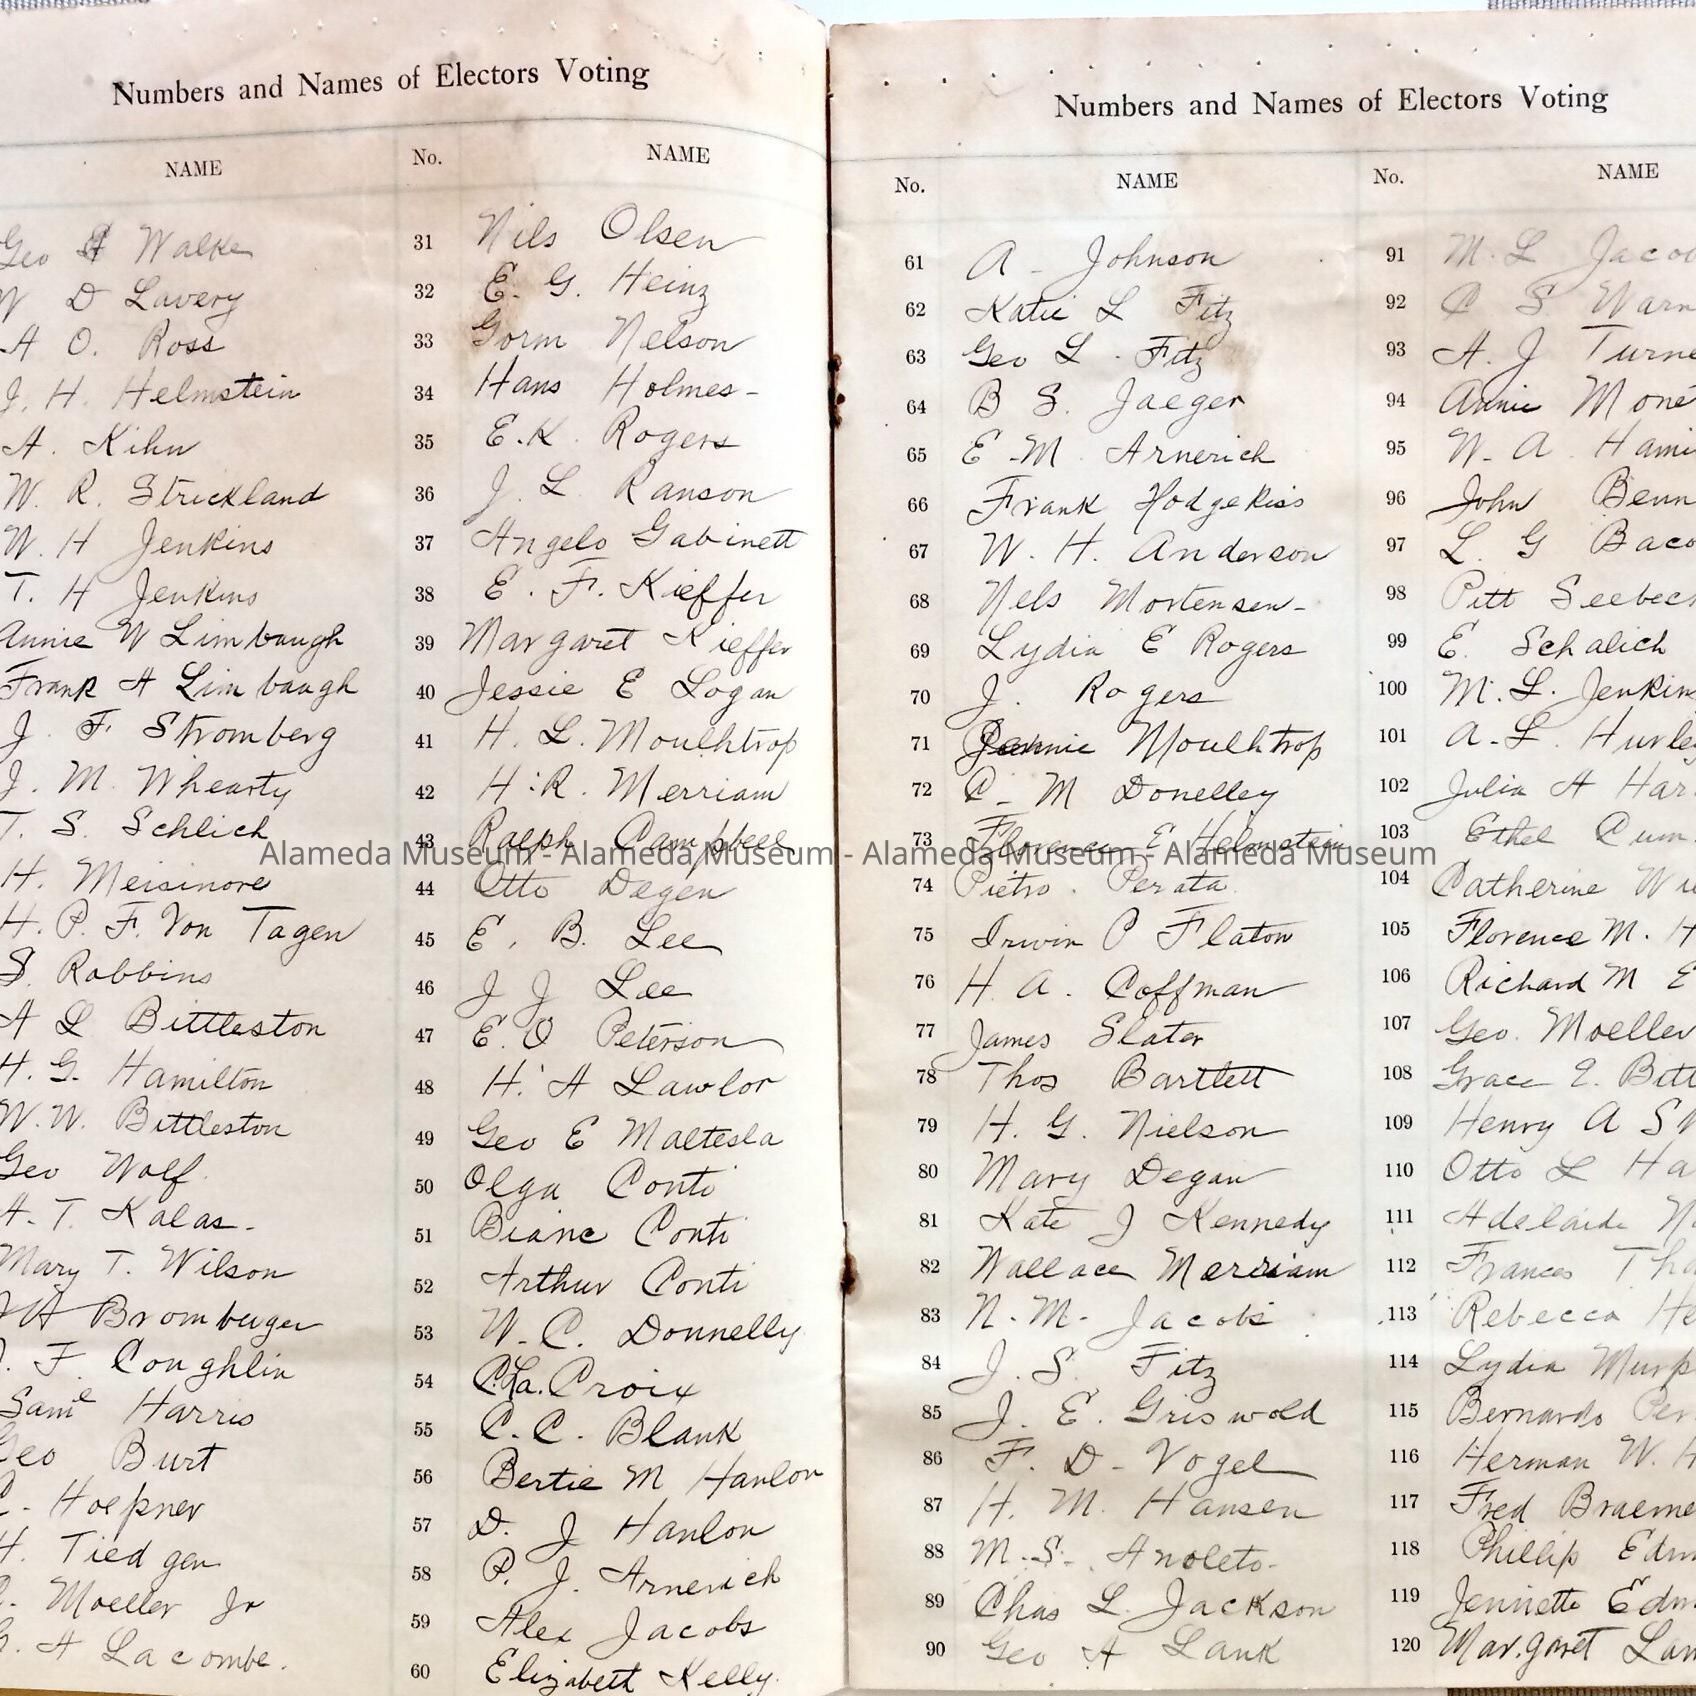 Numbers and Names of Electors Voting
NAME
No.
NAME
Geo Walker
W D Lavery
A O. Ross
J. H. Helmstein
A. Kihn
W. R. Strickland
W. H Jenkins
T. H Jenkins
Annie W Limbaugh
Frank A Limbaugh
J. F. Stromberg
J. M. Whearty
T. S. Schlich
H. Meisinore
H. P. F. Von Tagen
S. Robbins
A L Bittleston
H. G. Hamilton
W. W. Bittleston
Geo Wolf.
A. T. Kalas.
Mary T. Wilson
A Bromberger
F Coughlin
Saml Harris
Geo Burt
C. Hoepner
H. Tiedgen
Moeller Jr
A Lacombe.
31 Nils Olsen
32 E. G. Heinz
33 Gorm Nelson
34 Hans Holmes-
35 E.K. Rogers
36 J. L. Ranson
37 Angelo Gabinett
38 E. F. Kieffer
39 Margaret Kieffer
40 Jessie E Logan
41 H. L. Moulhtrop
42 H. R. Merriam
43 Ralph Campbell
44 Otto Degen
45 E. B. Lee
46 J J Lee
47 E. O Peterson
48 H. A Lawlor
49 Geo E Maltesla
50 Olga Conti
51 Bianc Conti
52 Arthur Conti
53 W. C. Donnelly
54 C. La. Croix
55 C. C. Blank
56 Bertie M Hanlon
57 D. J Hanlon
58 P. J. Arnerich
59 Alex Jacobs
60 Elizabeth Kelly.
Numbers and Names of Electors Voting
No.
NAME
No.
NAME
61 A - Johnson
62 Katie L Fitz
63 Geo L. Fitz
64 B S. Jaeger
65 E M. Arnerich
66 Frank Hodgekiss
67 W. H. Anderson
68 Nels Mortensen-
69 Lydia E Rogers
70 J. Rogers
71 Jennie Moulhtrop
72 C - M Donelley
73 Florence E Helmstein
74 Pietro. Perata.
75 Irwin C Flaton
76 H. A. Coffman
77 James Slater
78 Thos Bartlett
79 H. G. Nielson
80 Mary Degan
81 Kate J Kennedy
82 Wallace Merriam
83 N. M. Jacobs
84 J. S. Fitz
85 J. E. Griswold
86 F. D - Vogel
87 H. M. Hansen
88 M. S. Anoleto-
89 Chas L. Jackson
90 Geo A Lank
91 M. L Jacob
92 C S Warn
93 A. J Turne
94 Annie Mone
95 W. A. Hami
96 John Benn
97 L. G Baco
98 Pitt Seebeck
99 E. Schalich
100 M. L. Jenkins
101 A. L. Hurley
102 Julia A Har
103 Ethel Cum
104 Catherine W
105 Florence M. H
106 Richard M E
107 Geo. Moeller
108 Grace E. Bitt
109 Henry A S
110 Otto L Ha
111 Adelaide
112 Frances Tho
113 Rebecca He
114 Lydia Murp
115 Bernardo Per
116 Herman W. H
117 Fred Braeme
118 Phillip Edm
119 Jennette Edm
120 Margaret Lan
Alameda Museum - Alameda Museum - Alameda Museum - Alameda Museum